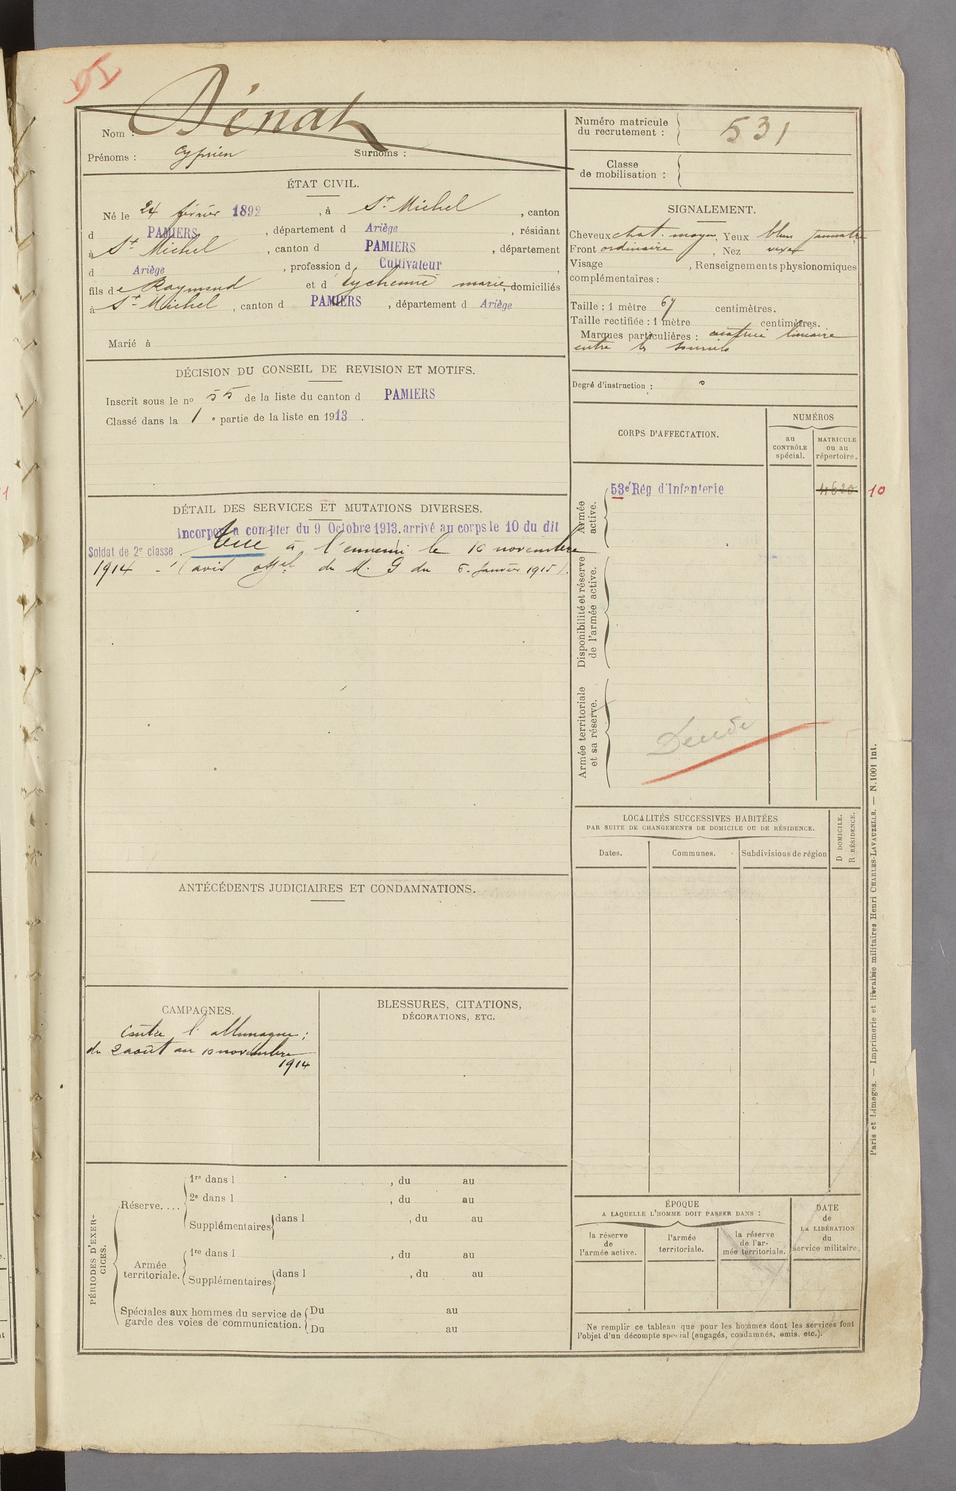 Dénat
Nom :
Prénoms : Cyprien Surnoms :
Numéro matricule
du recrutement : 531
Classe
de mobilisation :
ÉTAT CIVIL.
Né le 24 février 1892, à St Michel, canton
d PAMIERS, département d Ariège, résidant
à St Michel, canton d PAMIERS, département
d Ariège, profession d Cultivateur,
fils de Raymond et d Eychenne marie, domiciliés
à St Michel, canton d PAMIERS, département d Ariège
Marié à
SIGNALEMENT.
Cheveux chat. moyen, Yeux bleu jaunatre
Front ordinaire, Nez vexe
Visage , Renseignements physionomiques
complémentaires :
Taille : 1 mètre 67 centimètres.
Taille rectifiée : 1 mètre centimètres.
Marques particulières : cicatrice linéaire
entre les sourcils
Degré d'instruction :
DÉCISION DU CONSEIL DE REVISION ET MOTIFS.
Inscrit sous le no 55 de la liste du canton d PAMIERS
Classé dans la 1e partie de la liste en 1913.
CORPS D'AFFECTATION.
NUMÉROS
au
CONTRÔLE
spécial.
MATRICULE
ou au
répertoire.
Armée
active.
53e Rég d'Infanterie
10
Disponibilité et réserve
de l'armée active.
Armée territoriale
et sa réserve.
DÉTAIL DES SERVICES ET MUTATIONS DIVERSES.
Incorporé à compter du 9 Octobre 1913. arrivé au corps le 10 du dit
Soldat de 2e classe. Tué à l'ennemi le 10 novembre
1914 - (avis offel du M. G du 6 Janvier 1915).
LOCALITÉS SUCCESSIVES HABITÉES
PAR SUITE DE CHANGEMENTS DE DOMICILE OU DE RÉSIDENCE.
Dates.
Communes.
Subdivisions de région
D DOMICILE.
R RÉSIDENCE.
ANTÉCÉDENTS JUDICIAIRES ET CONDAMNATIONS.
CAMPAGNES.
Contre l'allemagne ;
du 2 août au 10 novembre
1914
BLESSURES, CITATIONS,
DÉCORATIONS, ETC.
PÉRIODES D'EXER-
CICES.
Réserve....
1re dans l , du au
2e dans l , du au
Supplémentaires dans l , du au
Armée
territoriale.
1re dans l , du au
Supplémentaires dans l , du au
Spéciales aux hommes du service de
garde des voies de communication.
Du au
Du au
ÉPOQUE
A LAQUELLE L'HOMME DOIT PASSER DANS :
la réserve
de
l'armée active.
l'armée
territoriale.
la réserve
de l'ar-
mée territoriale.
DATE
de
LA LIBÉRATION
du
service militaire.
Ne remplir ce tableau que pour les hommes dont les services font
l'objet d'un décompte spécial (engagés, condamnés, omis, etc.).
Paris et Limoges. — Imprimerie et librairie militaires Henri CHARLES-LAVAUZELLE. — N. 1001 int.